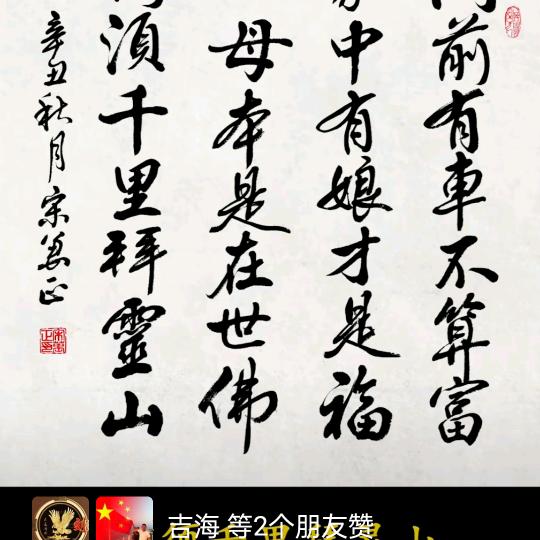 前有車不算富
中有娘才是福
母本是在世佛
須千里拜靈山
辛丑秋月宗萬正
吉海 等2个朋友赞